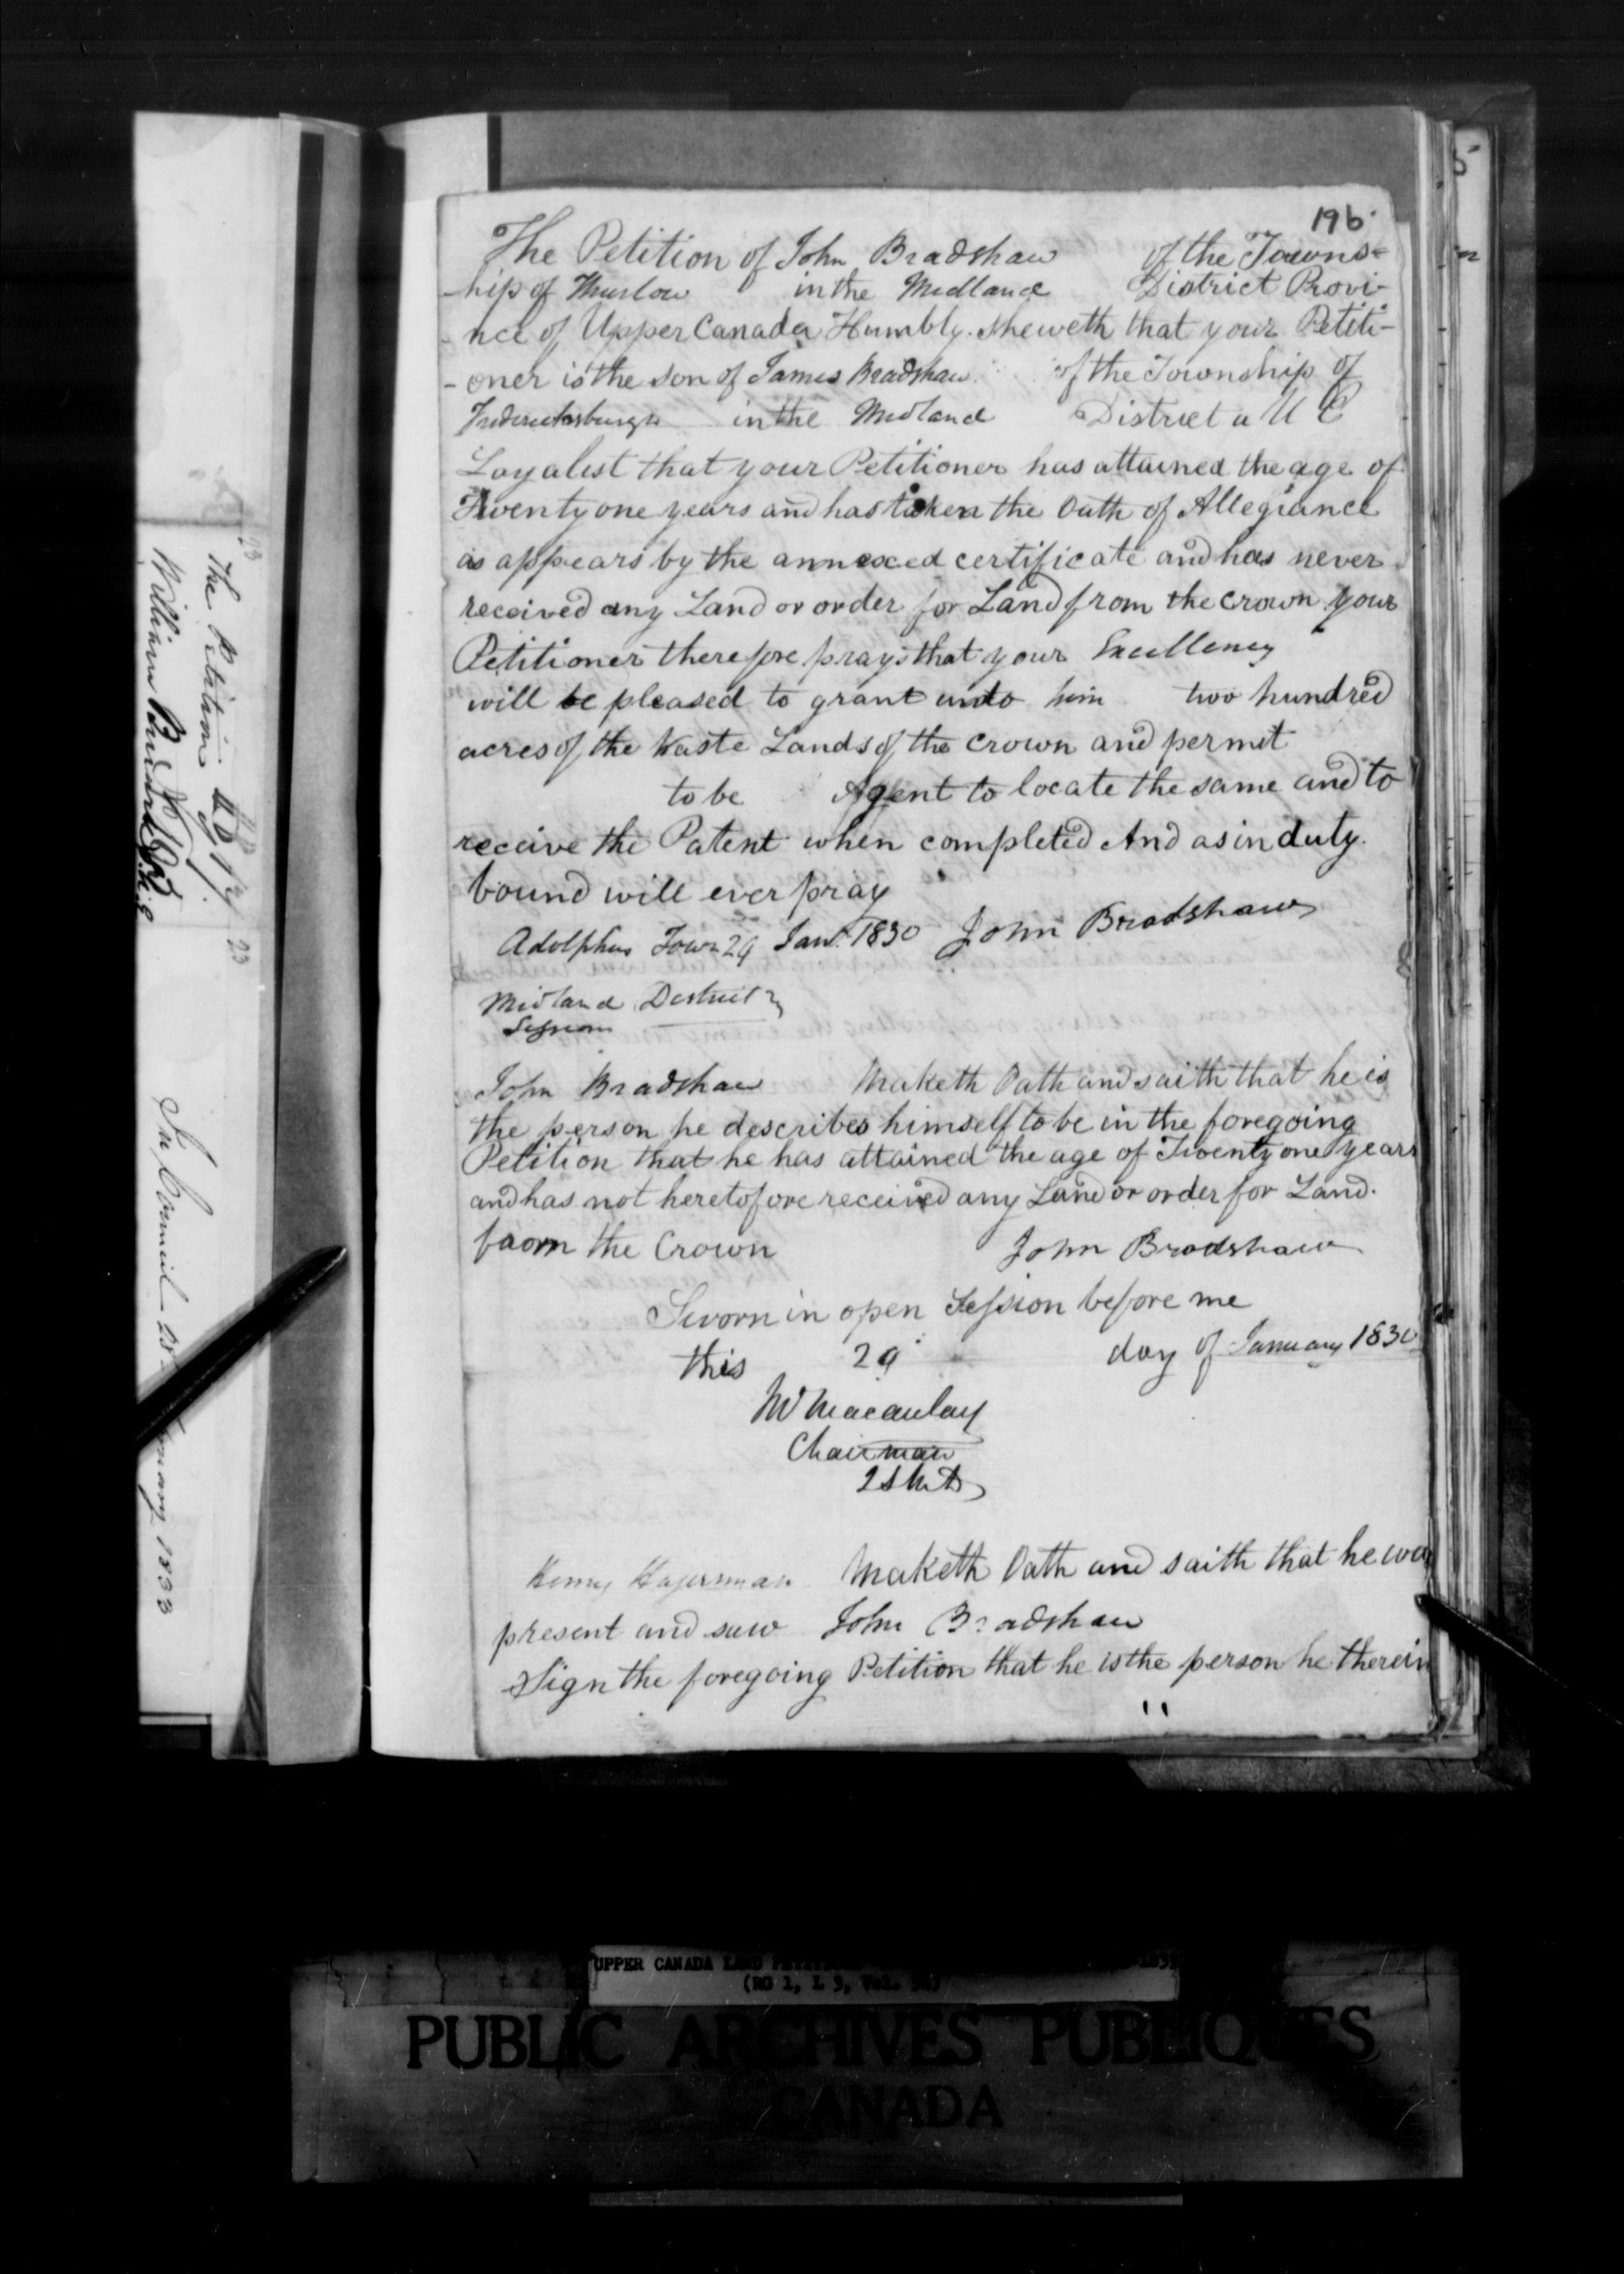 196
The Petition of John Bradshaw of the Towns=
-hip of Thurlow in the Midland District Provi-
-nce of Upper Canada Humbly sheweth that your Petiti-
-oner is the son of James Bradshaw of the Township of
Fredericksburgh in the Midland District a U E
Loyalist that your Petitioner has attained the age of
Twenty one years and has taken the Oath of Allegiance
as appears by the annexed certificate and has never
received any Land or order for Land from the crown your
Petitioner therefore prays that your Excellency
will be pleased to grant unto him two hundred
acres of the Waste Lands of the crown and permit
to be Agent to locate the same and to
receive the Patent when completed And as in duty
bound will ever pray
Adolphus Town 29 Jany 1830 John Bradshaw
Midland District
Session
John Bradshaw Maketh Oath and saith that he is
the person he describes himself to be in the foregoing
Petition that he has attained the age of Twenty one years
and has not heretofore received any Land or order for Land.
from the Crown John Bradshaw
Sworn in open Session before me
this 29 day of January 1830
Macaulay
Chairman
Henry Hagerman Maketh Oath and saith that he was
present and saw John Bradshaw
Sign the foregoing Petition that he is the person he therein
The Petition of
William
In Council 1833
UPPER CANADA LAND
(RG 1, L 3, Vol.
PUBLIC ARCHIVES PUBLIQUES
CANADA